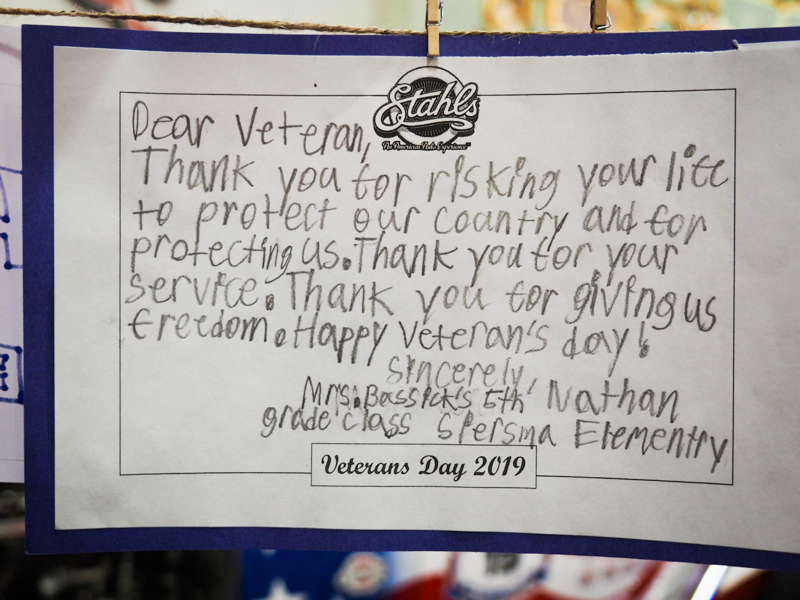 Stahls
An American Auto Experience
Dear Veteran,
Thank you for risking your life
to protect our country and for
protecting us. Thank you for your
service. Thank you for giving us
freedom. Happy Veteran's day!
Sincerely,
Mrs. Bassick's 5th Nathan
grade class Spersma Elementry
Veterans Day 2019